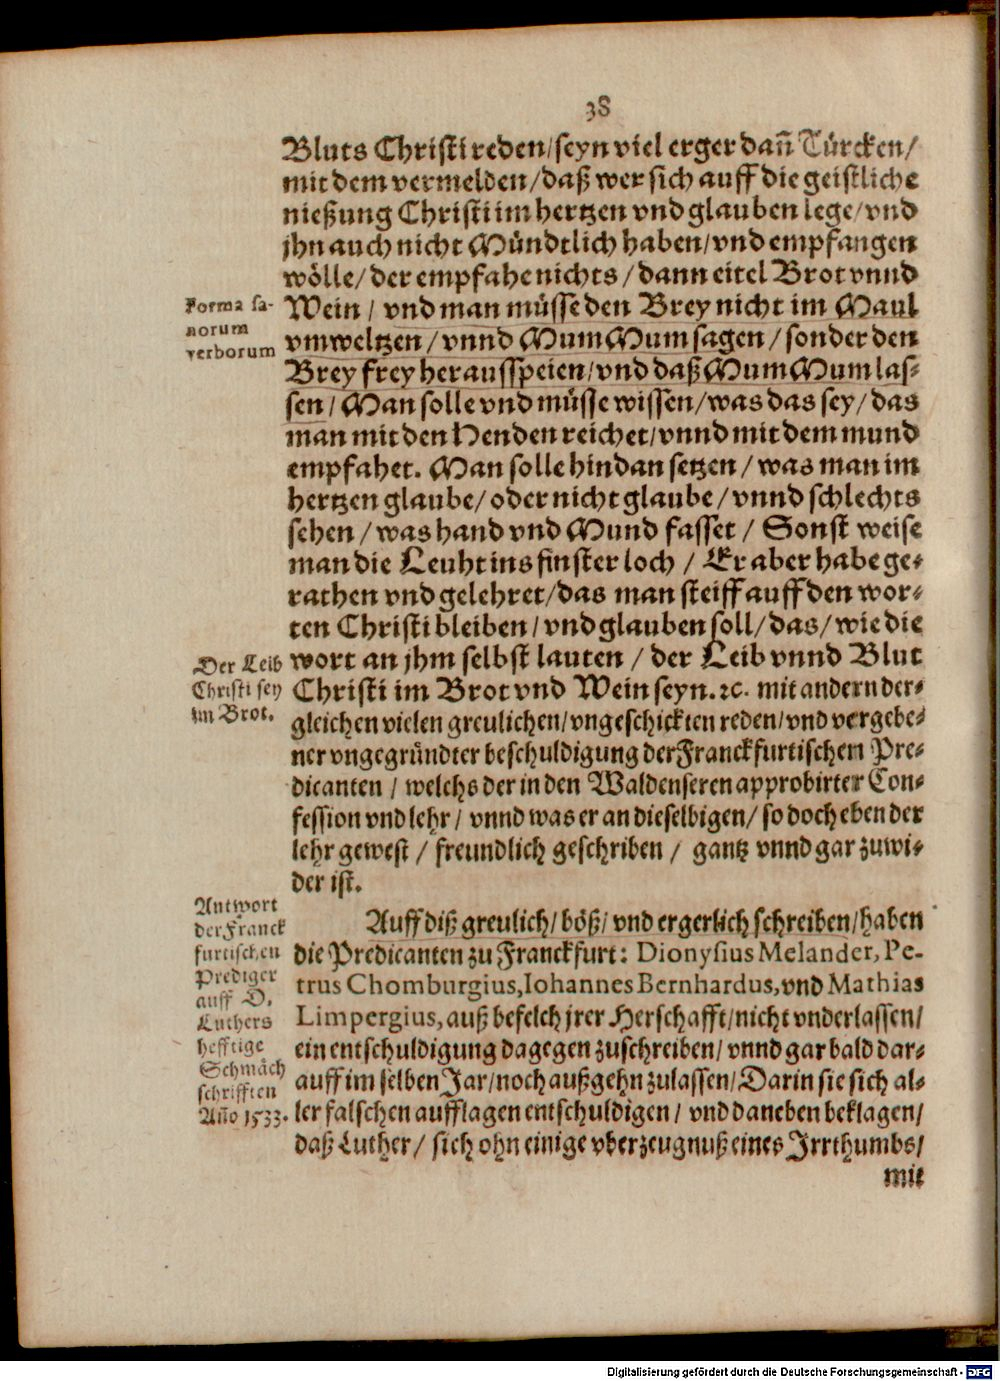 38
Bluts Christi reden/seyn viel erger dañ Türcken/
mit dem vermelden/daß wer sich auff die geistliche
nießung Christi im hertzen vnd glauben lege/vnd
jhn auch nicht Mündtlich haben/vnd empfangen
wölle/der empfahe nichts/dann eitel Brot vnnd
Forma sa-
norum
verborum
Wein/ vnd man müsse den Brey nicht im Maul
vmweltzen/vnnd Mum Mum sagen/sonder den
Brey frey heraussspeien/vnd daß Mum Mum las-
sen/ Man solle vnd müsse wissen/was das sey/das
man mit den Henden reichet/vnnd mit dem mund
empfahet. Man solle hindan setzen/was man im
hertzen glaube/oder nicht glaube/vnnd schlechts
sehen/was hand vnd Mund fasset/ Sonst weise
man die Leuht ins finster loch/ Er aber habe ge-
rathen vnd gelehret/das man steiff auff den wor-
ten Christi bleiben/vnd glauben soll/das/wie die
Der Leib
Christi sey
im Brot.
wort an jhm selbst lauten/der Leib vnnd Blut
Christi im Brot vnd Wein seyn.ꝛc. mit andern der-
gleichen vielen greulichen/vngeschickten reden/vnd vergebe-
ner vngegründter beschuldigung der Franckfurtischen Pre-
dicanten/ welchs der in den Waldenseren approbirter Con-
fession vnd lehr/ vnnd was er an dieselbigen/ so doch eben der
lehr gewest/ freundlich geschriben/ gantz vnnd gar zuwi-
der ist.
Antwort
der Franck
furtischen
Prediger
auff D.
Luthers
hefftige
Schmäch
schrifften
Año 1533.
Auff diß greulich/böß/vnd ergerlich schreiben/haben
die Predicanten zu Franckfurt: Dionysius Melander, Pe-
trus Chomburgius, Iohannes Bernhardus, vnd Mathias
Limpergius, auß befelch jrer Herschafft/nicht vnderlassen/
ein entschuldigung dagegen zuschreiben/ vnnd gar bald dar-
auff im selben Jar/noch außgehn zulassen/Darin sie sich al-
ler falschen aufflagen entschuldigen/ vnd daneben beklagen/
daß Luther/ sich ohn einige vberzeugnuß eines Irrthumbs/
mit
Digitalisierung gefördert durch die Deutsche Forschungsgemeinschaft - DFG